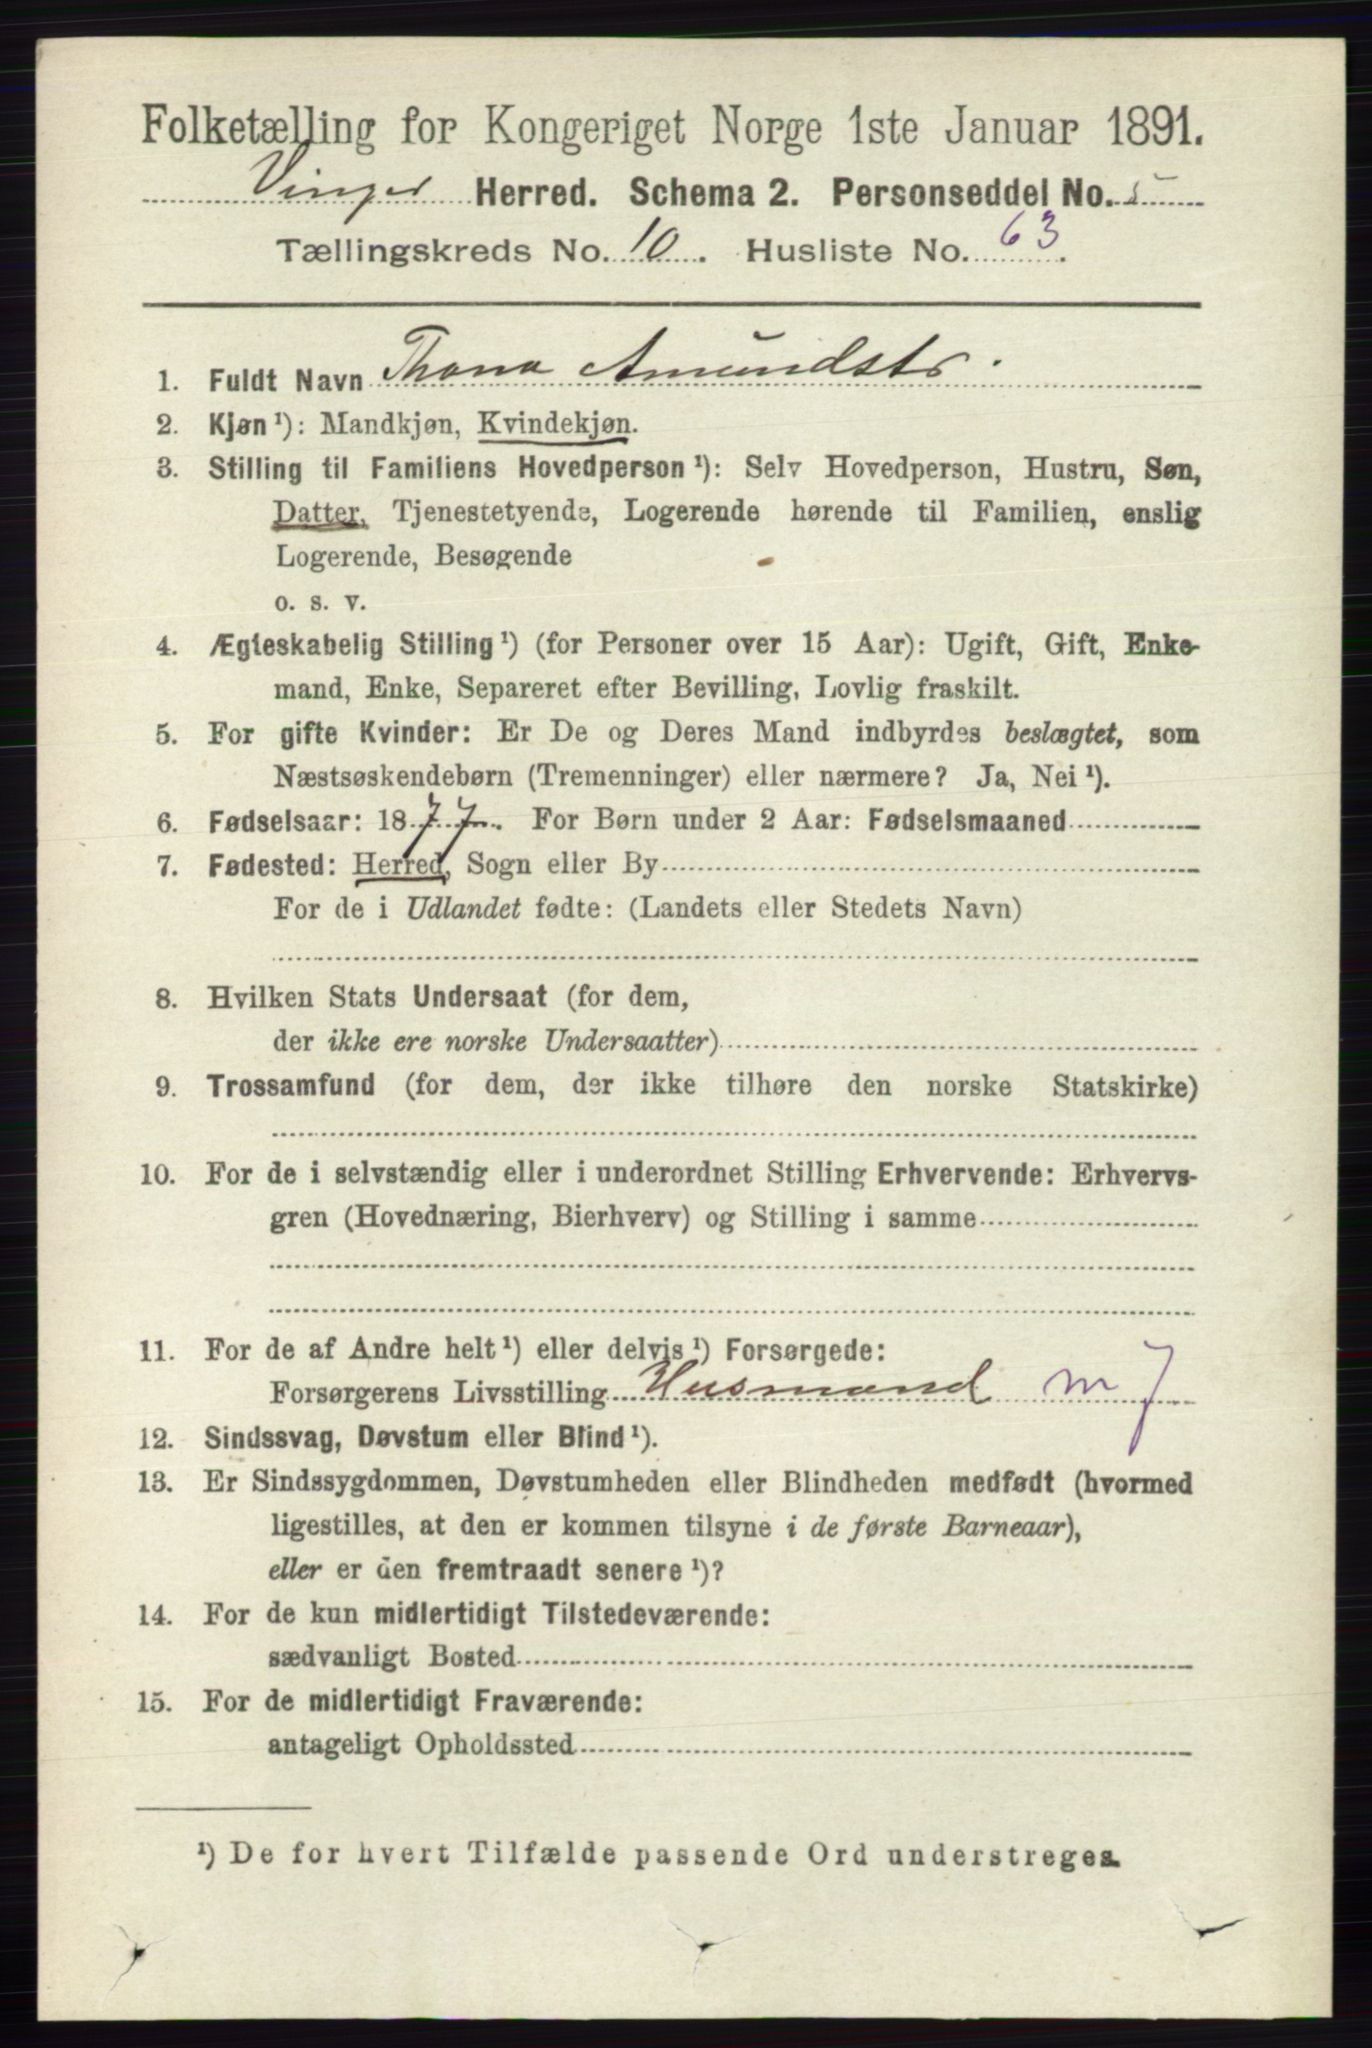 Folketælling for Kongeriget Norge 1ste Januar 1891.
Vinger Herred. Schema 2. Personseddel No. 5
Tællingskreds No. 10. Husliste No. 63.
1. Fuldt Navn Thona Amundstr.
2. Kjøn¹): Mandkjøn, Kvindekjøn.
3. Stilling til Familiens Hovedperson¹): Selv Hovedperson, Hustru, Søn,
Datter, Tjenestetyende, Logerende hørende til Familien, enslig
Logerende, Besøgende
o. s. v.
4. Ægteskabelig Stilling¹) (for Personer over 15 Aar): Ugift, Gift, Enke-
mand, Enke, Separeret efter Bevilling, Lovlig fraskilt.
5. For gifte Kvinder: Er De og Deres Mand indbyrdes beslægtet, som
Næstsøskendebørn (Tremenninger) eller nærmere? Ja, Nei¹).
6. Fødselsaar: 1877. For Børn under 2 Aar: Fødselsmaaned
7. Fødested: Herred, Sogn eller By
For de i Udlandet fødte: (Landets eller Stedets Navn)
8. Hvilken Stats Undersaat (for dem,
der ikke ere norske Undersaatter)
9. Trossamfund (for dem, der ikke tilhøre den norske Statskirke)
10. For de i selvstændig eller i underordnet Stilling Erhvervende: Erhvervs-
gren (Hovednæring, Bierhverv) og Stilling i samme
11. For de af Andre helt¹) eller delvis¹) Forsørgede:
Forsørgerens Livsstilling Husmand m 7
12. Sindssvag, Døvstum eller Blind¹).
13. Er Sindssygdommen, Døvstumheden eller Blindheden medfødt (hvormed
ligestilles, at den er kommen tilsyne i de første Barneaar),
eller er den fremtraadt senere¹)?
14. For de kun midlertidigt Tilstedeværende:
sædvanligt Bosted
15. For de midlertidigt Fraværende:
antageligt Opholdssted
¹) De for hvert Tilfælde passende Ord understreges.